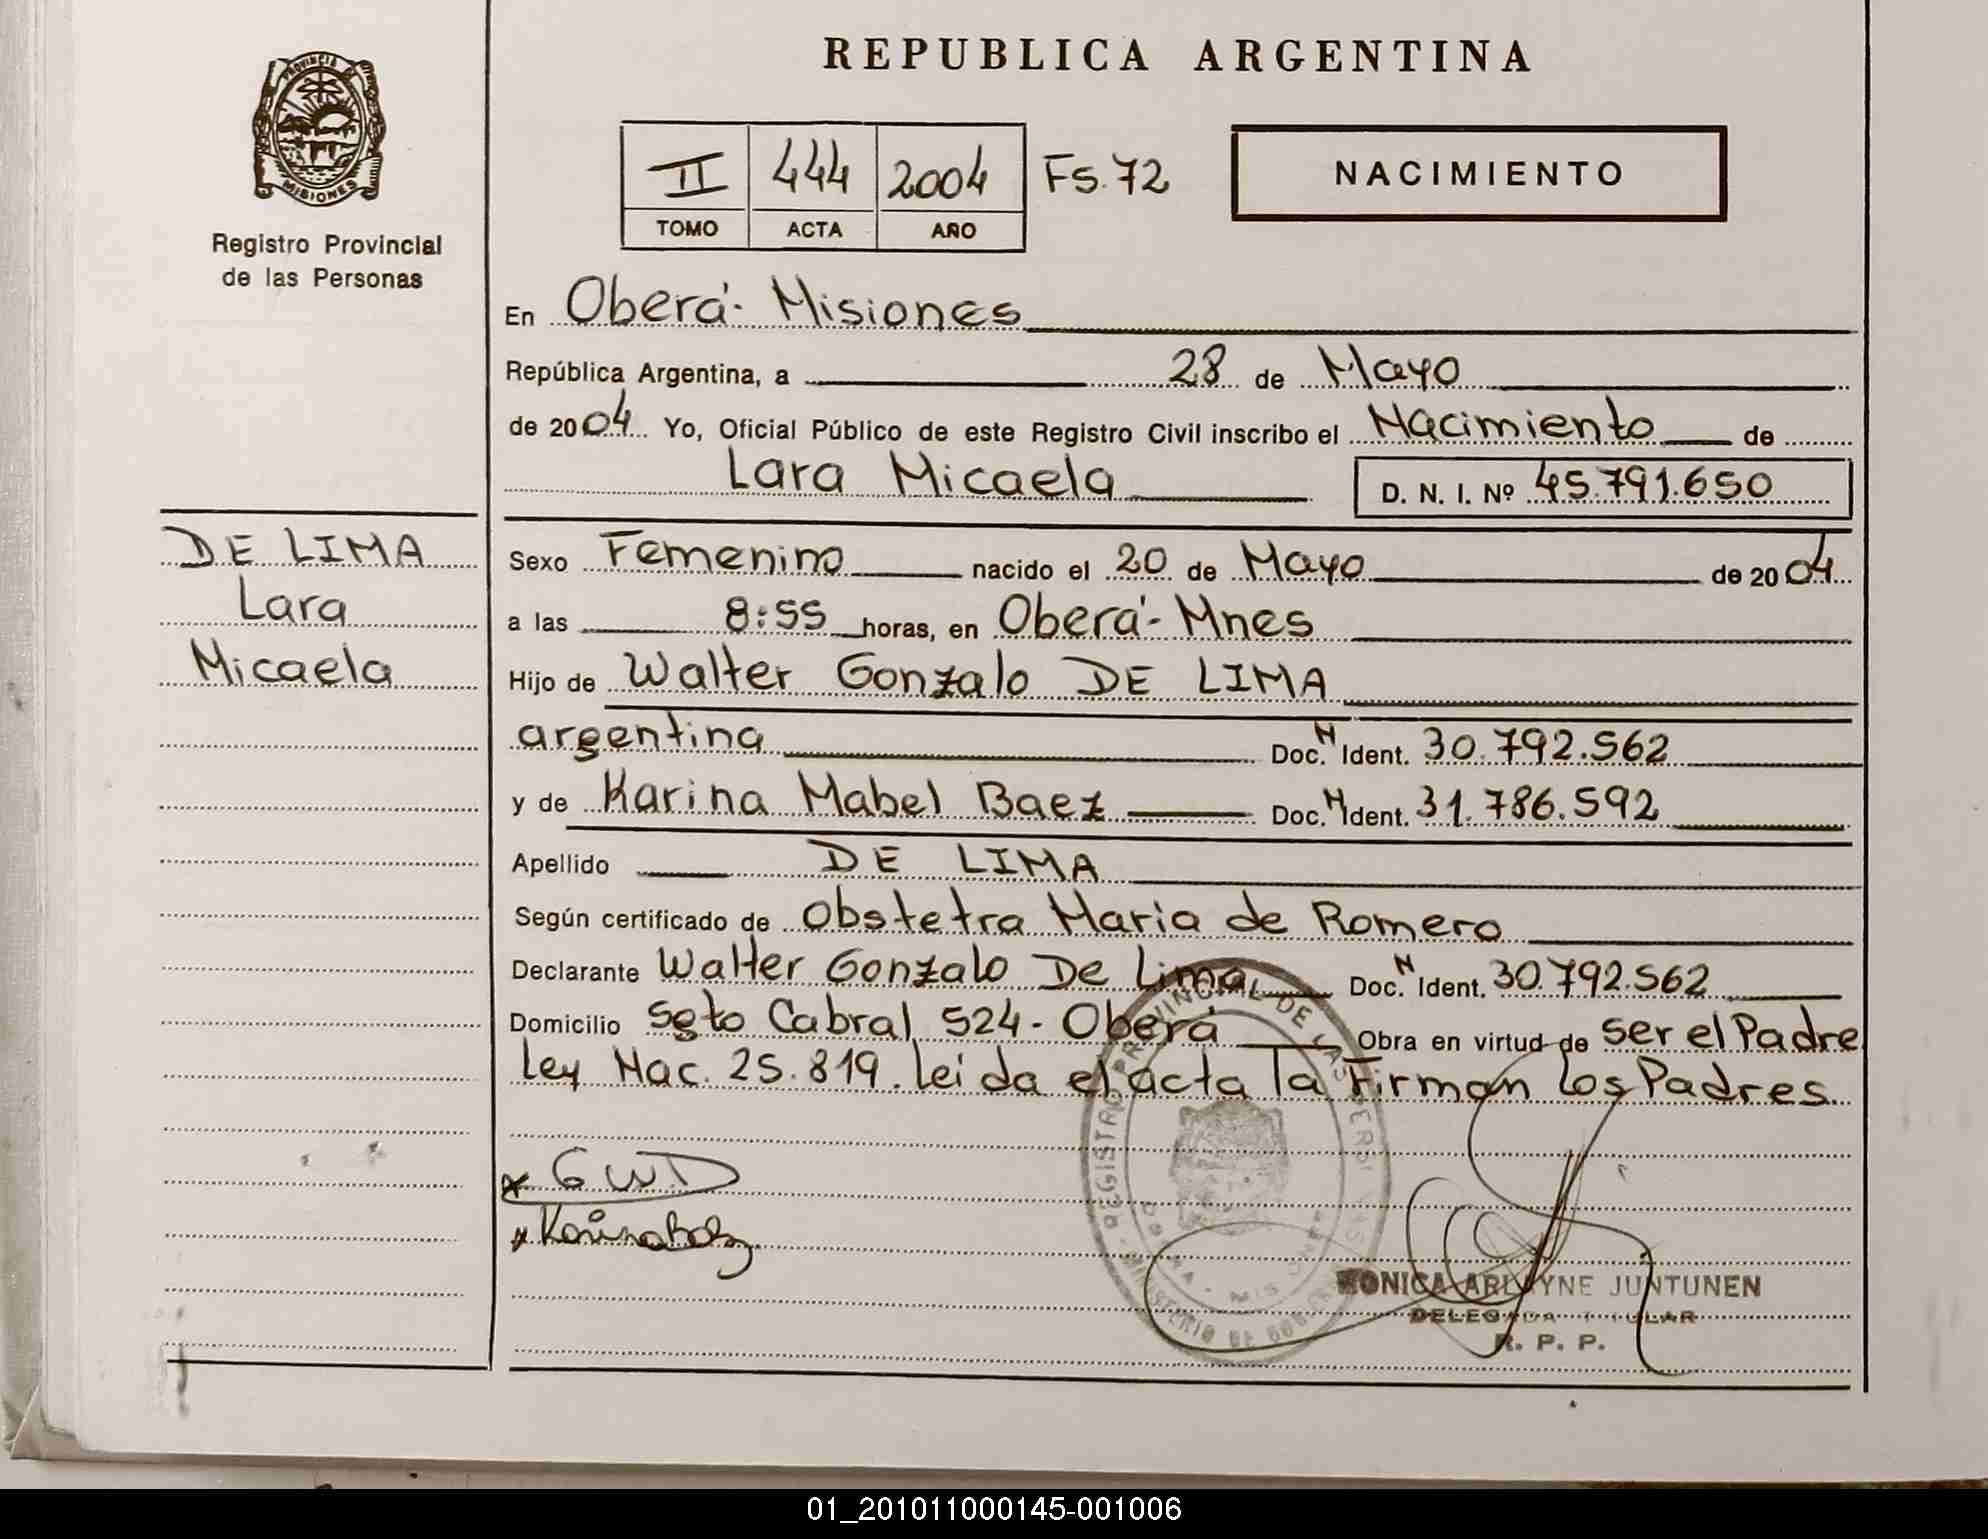 REPUBLICA ARGENTINA
PROVINCIA DE MISIONES
Registro Provincial
de las Personas
II 444 2004 Fs. 72
TOMO ACTA AÑO
NACIMIENTO
En Oberá - Misiones
República Argentina, a 28 de Mayo
de 2004 Yo, Oficial Público de este Registro Civil inscribo el Nacimiento de
Lara Micaela D. N. I. Nº 45.791.650
DE LIMA
Lara
Micaela
Sexo Femenino nacido el 20 de Mayo de 2004
a las 8:55 horas, en Oberá - Mnes
Hijo de Walter Gonzalo DE LIMA
argentina Doc. N Ident. 30.792.562
y de Karina Mabel Baez Doc. N Ident. 31.786.592
Apellido DE LIMA
Según certificado de Obstetra Maria de Romero
Declarante Walter Gonzalo De Lima Doc. N Ident. 30.792.562
Domicilio Sgto Cabral 524 - Oberá Obra en virtud de ser el Padre
Ley Nac. 25.819. leida el acta la Firman los Padres
x G W D
x Karina Baez
REGISTRO PROVINCIAL DE LAS PERSONAS
MONICA ARLAYNE JUNTUNEN
DELEGADA TITULAR
R. P. P.
01_201011000145-001006